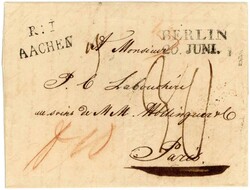 R. I
AACHEN
BERLIN
20 JUNI.
A Monsieur
P. C. Labouchère
au soins de M. M. Hottinguer & C
Paris